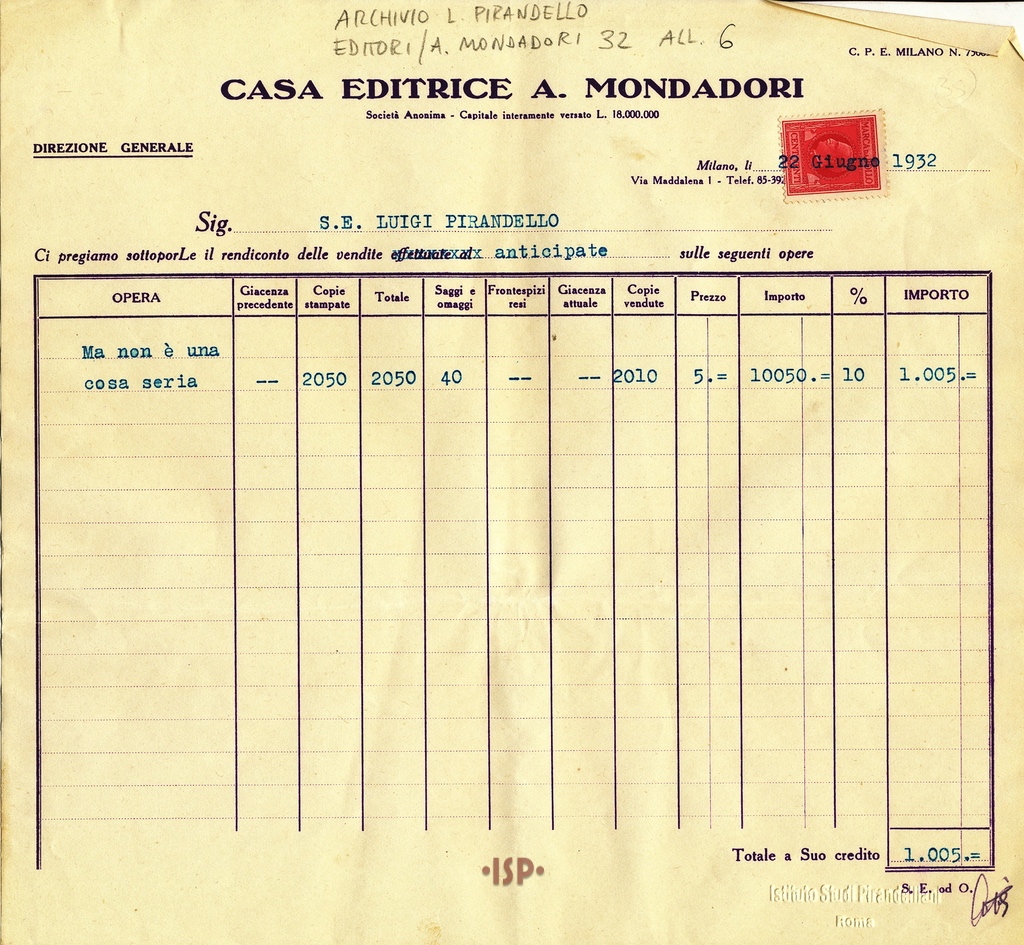 ARCHIVIO L. PIRANDELLO
EDITORI/A. MONDADORI 32 ALL. 6
C. P. E. MILANO N.
CASA EDITRICE A. MONDADORI
Società Anonima - Capitale interamente versato L. 18.000.000
DIREZIONE GENERALE
Milano, li 22 Giugno 1932
Via Maddalena 1 - Telef. 85-392
Sig. S.E. LUIGI PIRANDELLO
Ci pregiamo sottoporLe il rendiconto delle vendite effettuate al anticipate sulle seguenti opere
OPERA Giacenza precedente Copie stampate Totale Saggi e omaggi Frontespizi resi Giacenza attuale Copie vendute Prezzo Importo % IMPORTO
Ma non è una
cosa seria -- 2050 2050 40 -- -- 2010 5.= 10050.= 10 1.005.=
Totale a Suo credito 1.005.=
•ISP•
S. E. od O.
Istituto Studi Pirandelliani
Roma